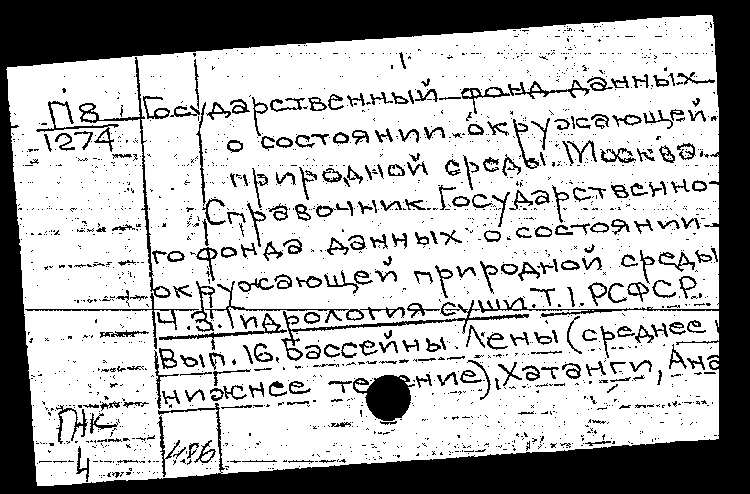 П8
1274
Государственный фонд данных
о состоянии окружающей
природной среды. Москва.
Справочник Государственно-
го фонда данных о состоянии
окружающей природной среды
Ч.3. Гидрология суши. Т.1. РСФСР.
Вып. 16. Бассейны Лены (среднее
нижнее течение), Хатанги, Ана
4
486